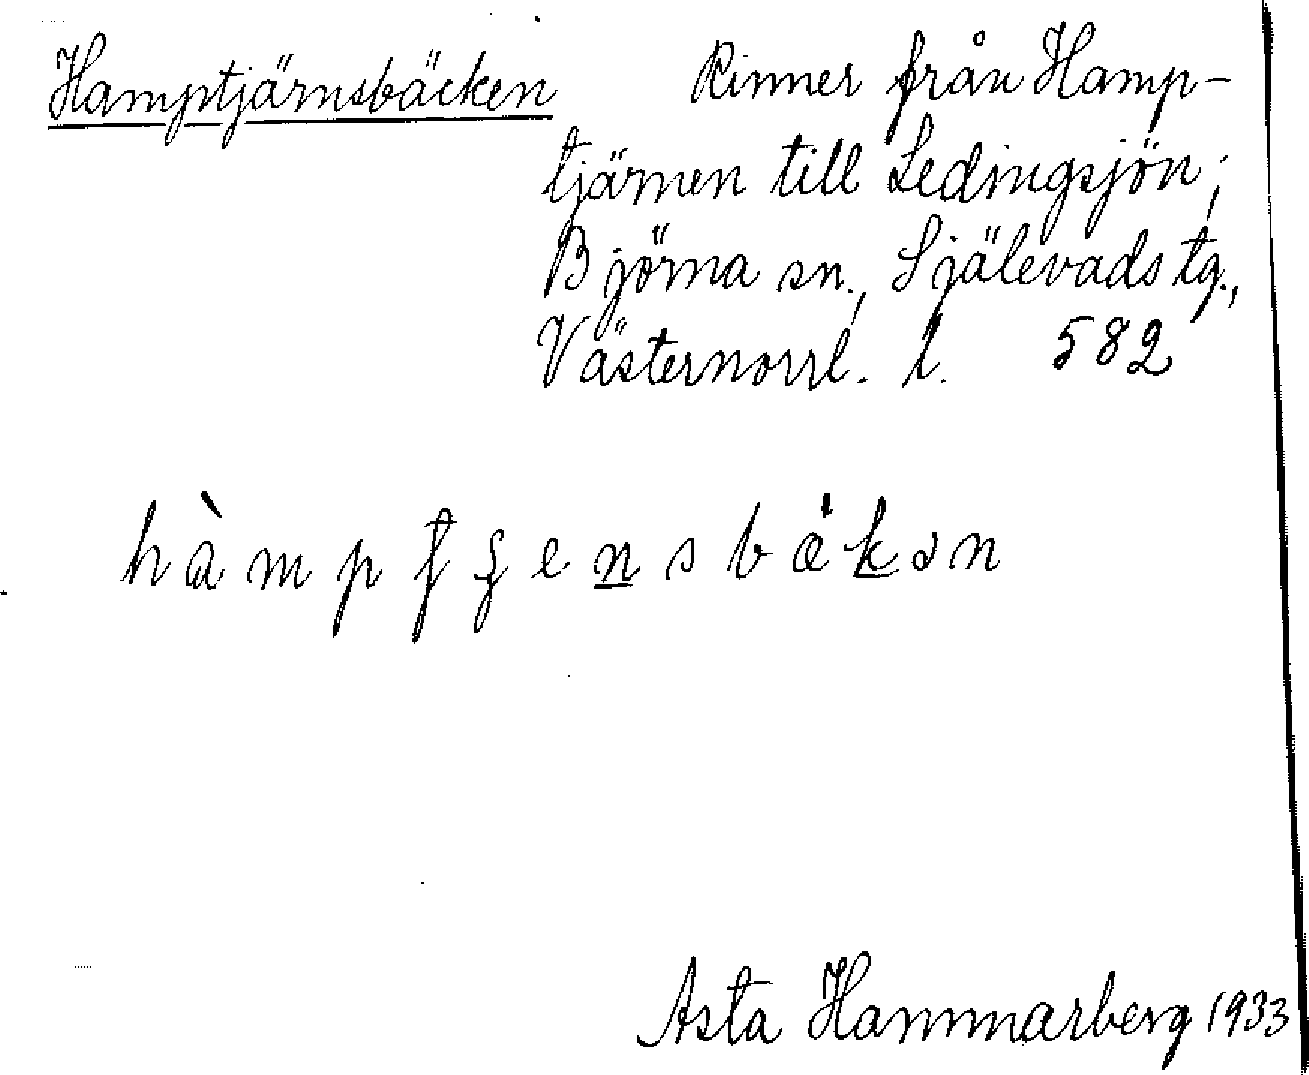 Hamptjärnsbäcken Rinner från Hamp-
tjärnen till Ledingsjön;
Björna sn., Själevads tg.,
Västernorrl. l. 582
Asta Hammarberg 1933